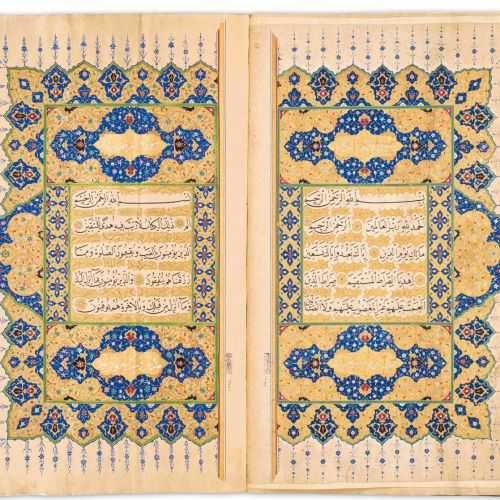 بسم الله الرحمن الرحيم
الحمد لله رب العالمين الرحمن الرحيم
مالك يوم الدين اياك نعبد واياك نستعين
اهدنا الصراط المستقيم صراط الذين
انعمت عليهم غير المغضوب عليهم ولا الضالين
بسم الله الرحمن الرحيم
الم ذلك الكتاب لا ريب فيه هدى للمتقين
الذين يؤمنون بالغيب ويقيمون الصلوة ومما
رزقناهم ينفقون والذين يؤمنون بما انزل اليك
وما انزل من قبلك وبالآخرة هم يوقنون